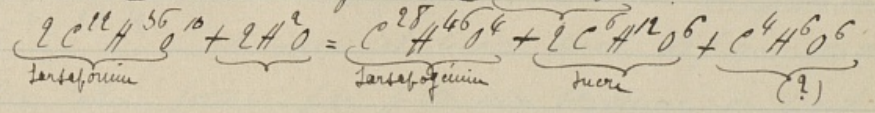 2C²²H³⁶O¹⁰ + 2H²O = C²⁸H⁴⁶O⁴ + 2C⁶H¹²O⁶ + C⁴H⁶O⁶
Sarsaponin Sarsapogénine sucre (?)